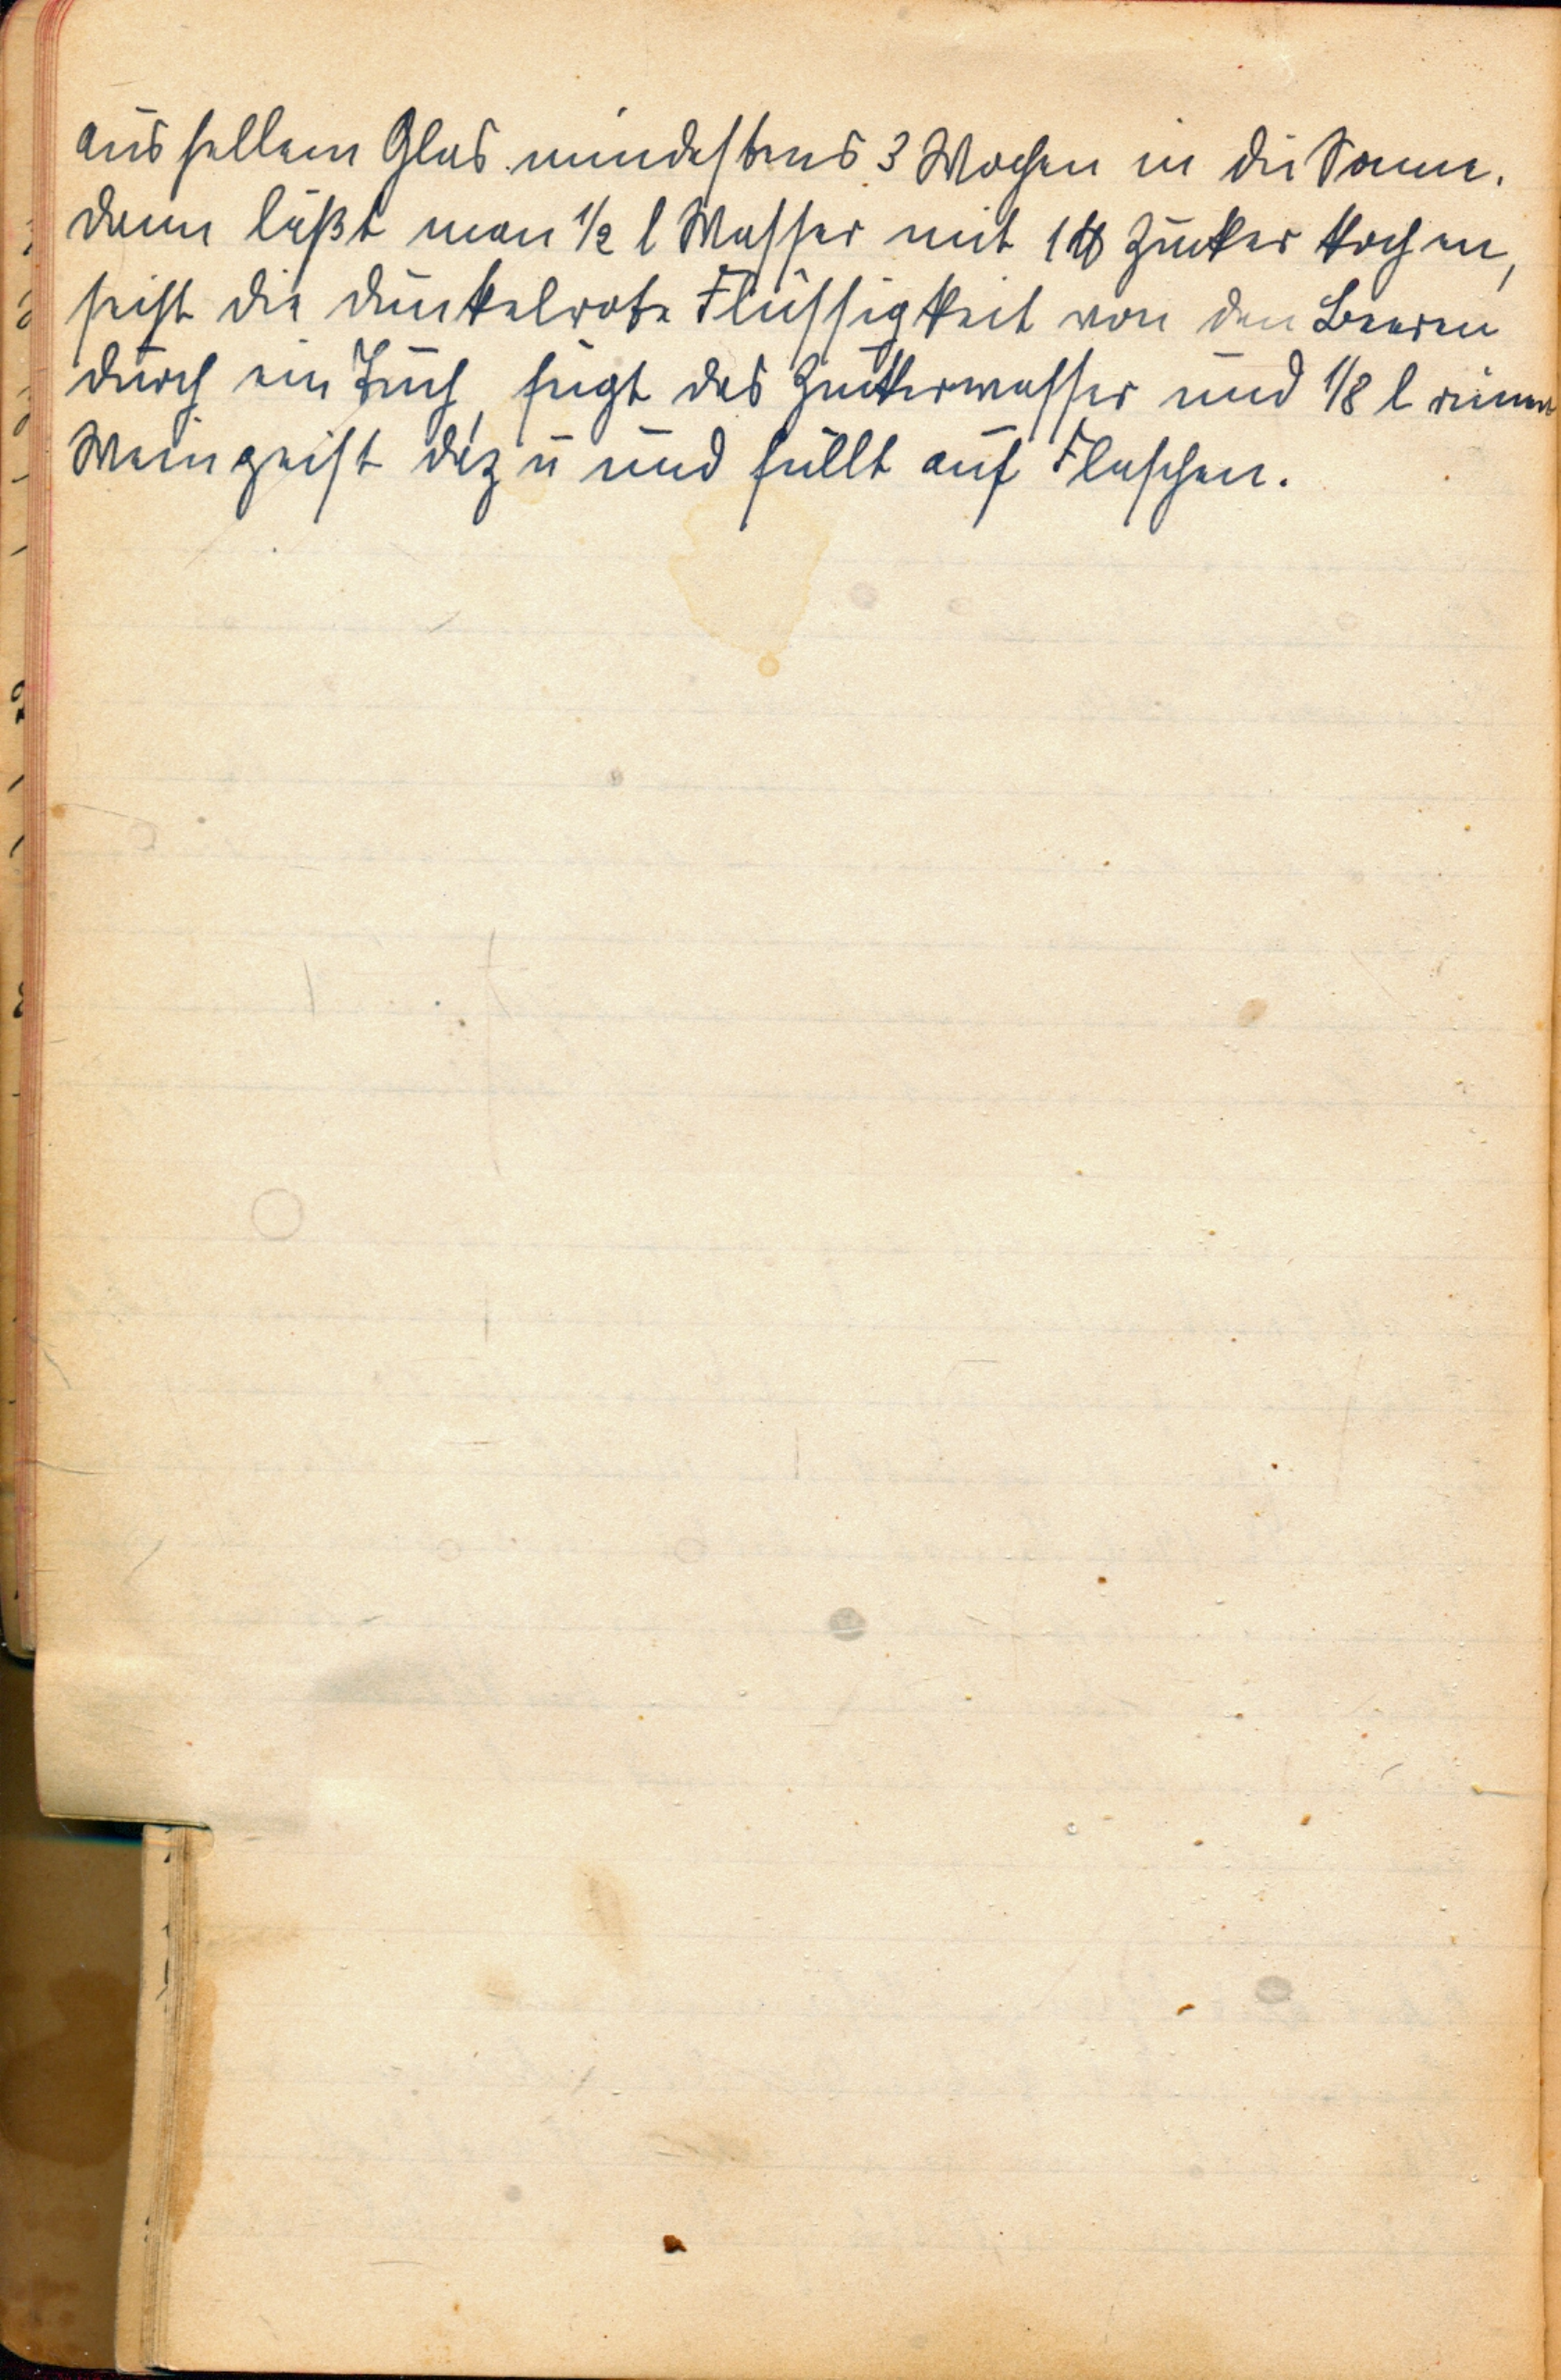 aus hellem Glas mindestens 3 Wochen in die Sonne.
Dann läßt man 1/2 l Wasser mit 1 ℔ Zucker kochen,
seiht die dunkelrote Flüssigkeit von den Beeren
durch ein Tuch, fügt das Zuckerwasser und 1/8 l reinen
Weingeist dazu und füllt auf Flaschen.